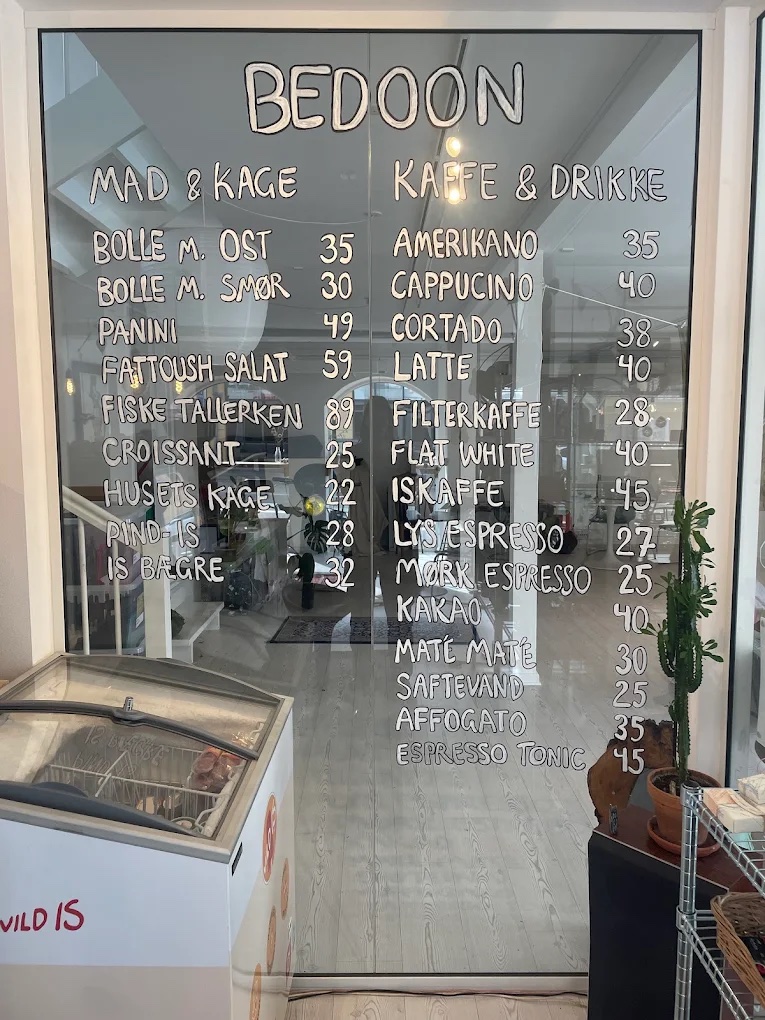 BEDOON
MAD & KAGE
BOLLE M. OST 35
BOLLE M. SMØR 30
PANINI 49
FATTOUSH SALAT 59
FISKE TALLERKEN 89
CROISSANT 25
HUSETS KAGE 22
PIND-IS 28
IS BÆGRE 32
KAFFE & DRIKKE
AMERIKANO 35
CAPPUCINO 40
CORTADO 38
LATTE 40
FILTERKAFFE 28
FLAT WHITE 40
ISKAFFE 45
LYS ESPRESSO 27
MØRK ESPRESSO 25
KAKAO 40
MATÉ MATÉ 30
SAFTEVAND 25
AFFOGATO 35
ESPRESSO TONIC 45
VILD IS